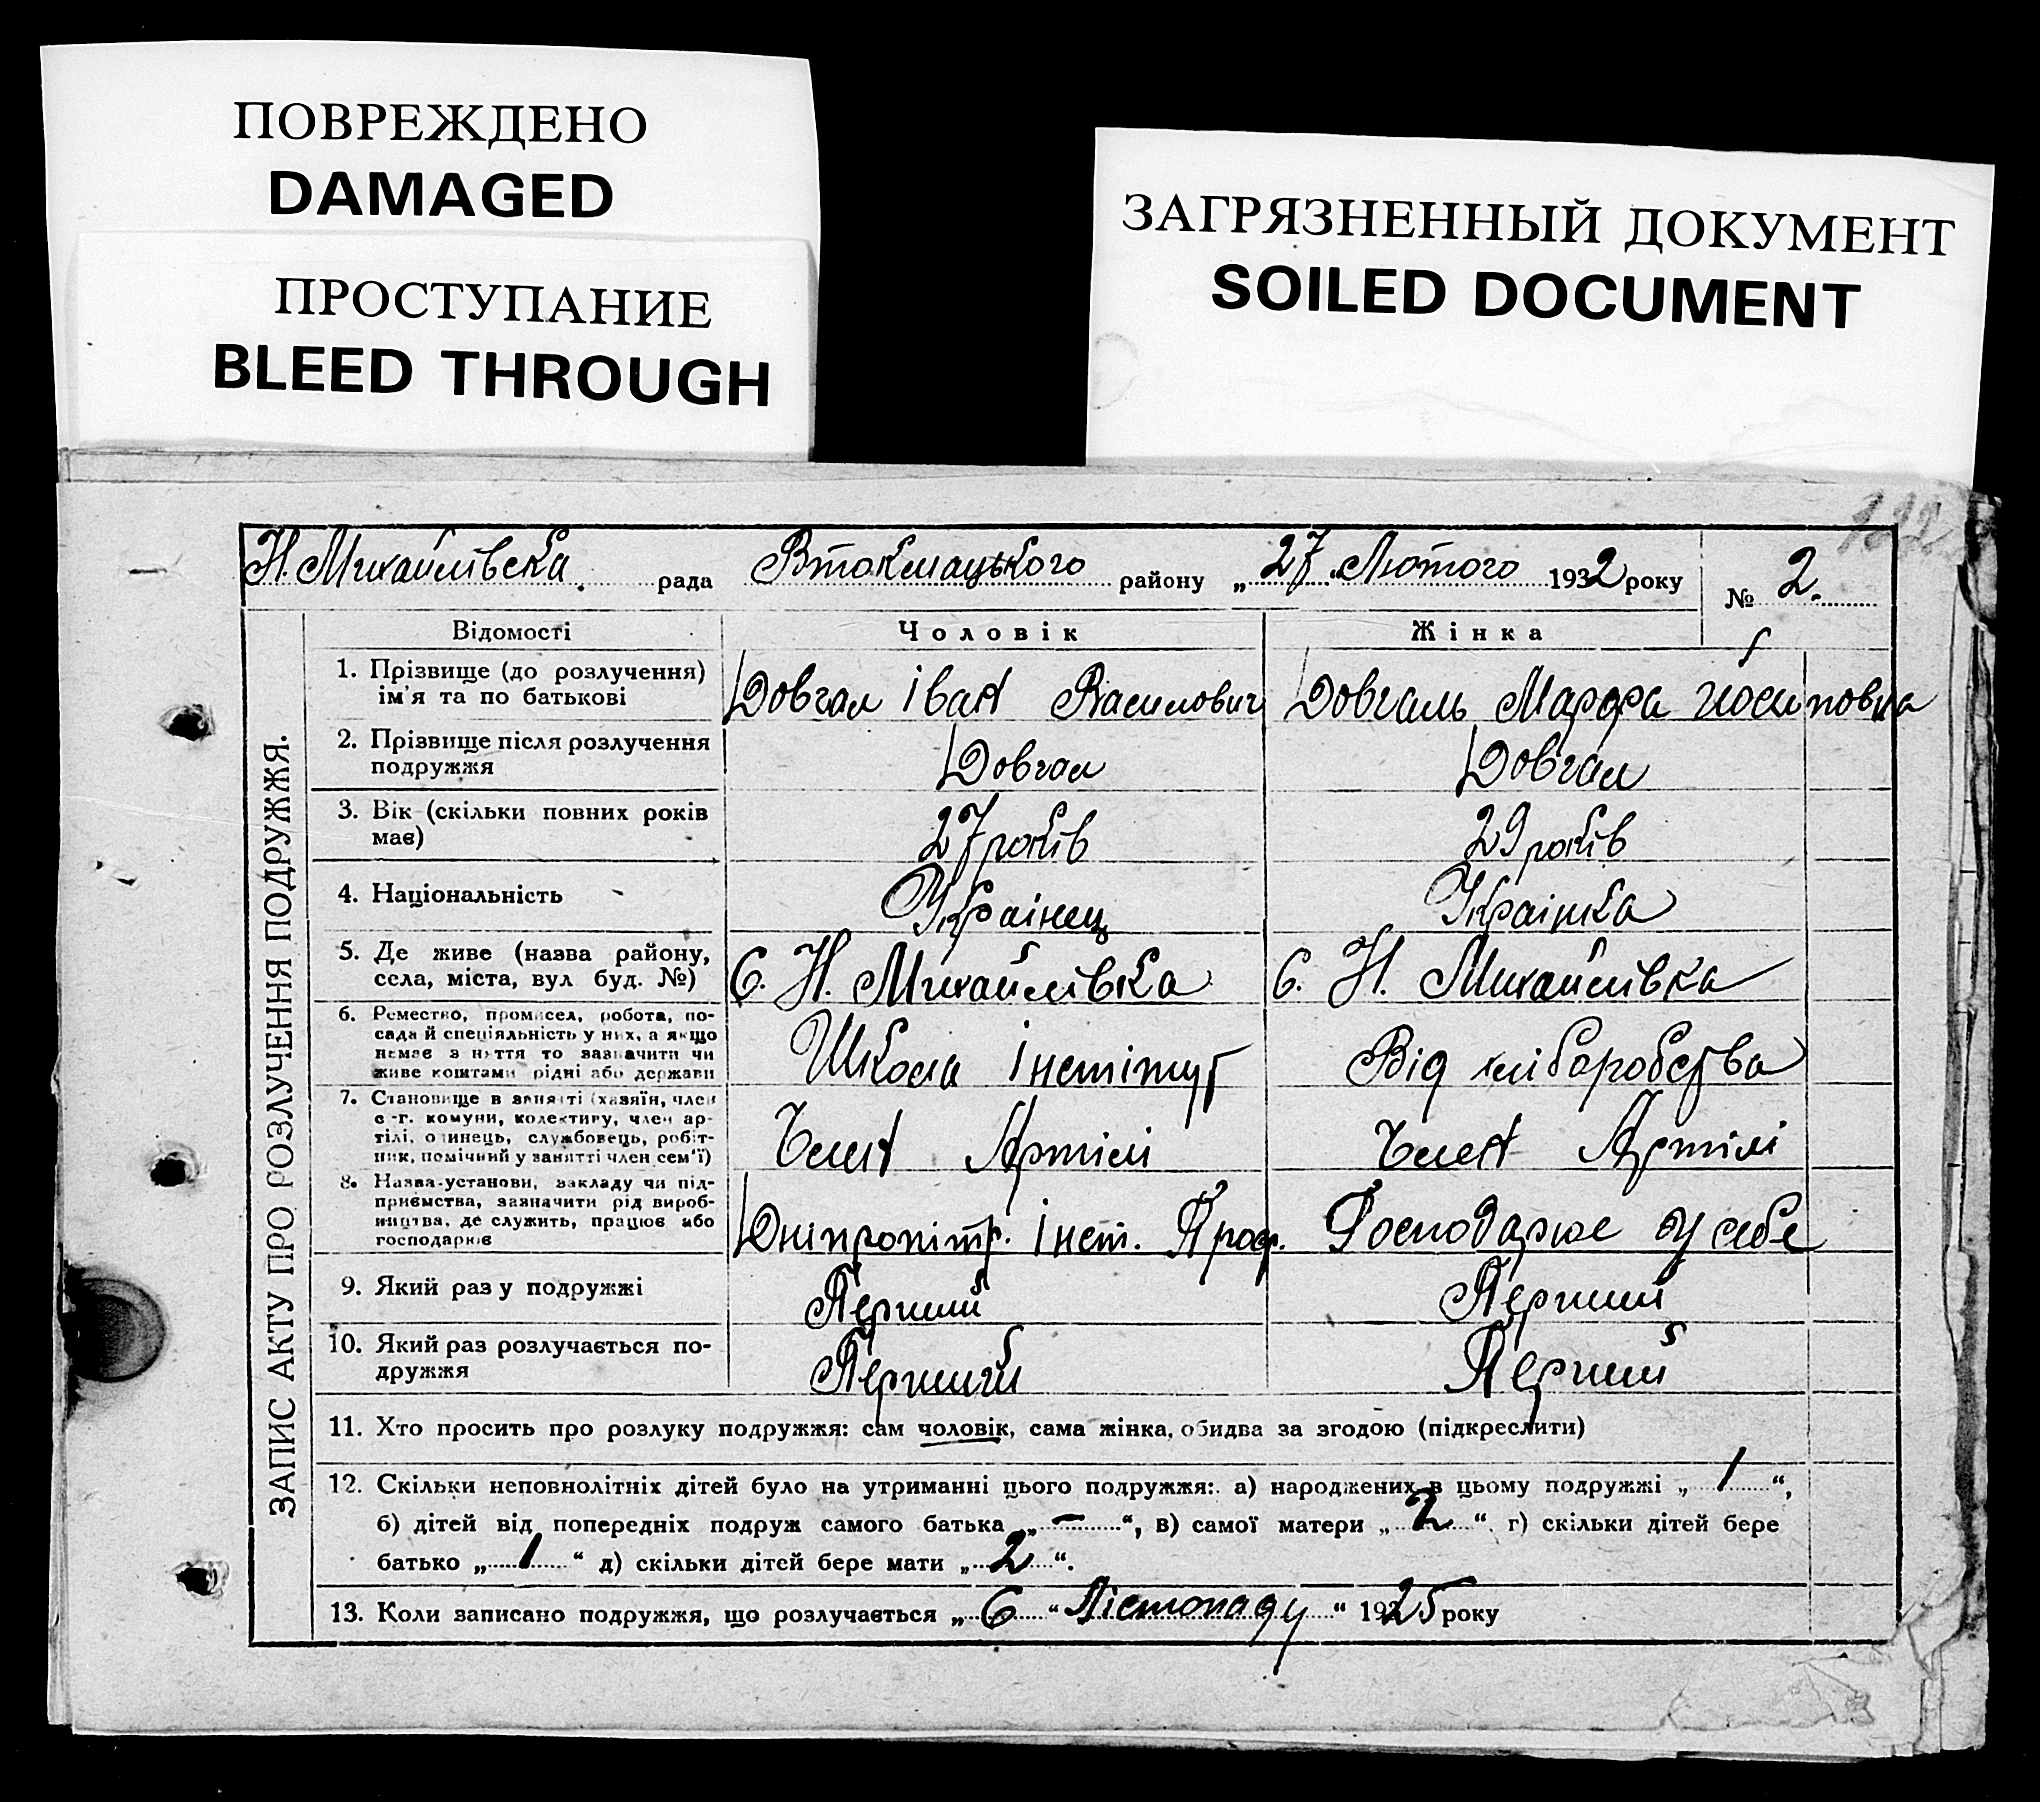 ПОВРЕЖДЕНО
DAMAGED
ПРОСТУПАНИЕ
BLEED THROUGH
ЗАГРЯЗНЕННЫЙ ДОКУМЕНТ
SOILED DOCUMENT
Н. Михайлівска рада Втокмацького району „27" Лютого 1932 року № 2.
ЗАПИС АКТУ ПРО РОЗЛУЧЕННЯ ПОДРУЖЖЯ.
Відомості Чоловік Жінка
1. Прізвище (до розлучення)
ім'я та по батькові
Довгал Іван Василович Довгаль Марфа Йосиповна
2. Прізвище після розлучення
подружжя
Довгал Довгал
3. Вік (скільки повних років
має)
27 років 29 років
4. Національність Украінец Украінка
5. Де живе (назва району,
села, міста, вул буд. №)
С. Н. Михайлівка С. Н. Михайлівка
6. Ремество, промисел, робота, по-
сада й спеціяльність у них, а якщо
немає з няття то зазначити чи
живе коштами рідні або держави
Школа Інстітут Від хліборобства
7. Становище в занятті (хазяїн, член
с-г. комуни, колективу, член ар-
тілі, одинець, службовець, робіт-
ник, помічний у занятті член сем'ї)
Член Артілі Член Артілі
8. Назва установи, закладу чи під-
приємства, зазначити рід вироб-
ництва, де служить, працює або
господарює
Дніпропітр. Інст. Проф. Господарює у себе
9. Який раз у подружжі Перший Перший
10. Який раз розлучається по-
дружжя
Перший Перший
11. Хто просить про розлуку подружжя: сам чоловік, сама жінка, обидва за згодою (підкреслити)
12. Скільки неповнолітніх дітей було на утриманні цього подружжя: а) народжених в цьому подружжі „1“,
б) дітей від попередніх подруж самого батька „—“, в) самої матери „2“ г) скільки дітей бере
батько „1“ д) скільки дітей бере мати „2“.
13. Коли записано подружжя, що розлучається „6“ Лістопаду“ 1925 року